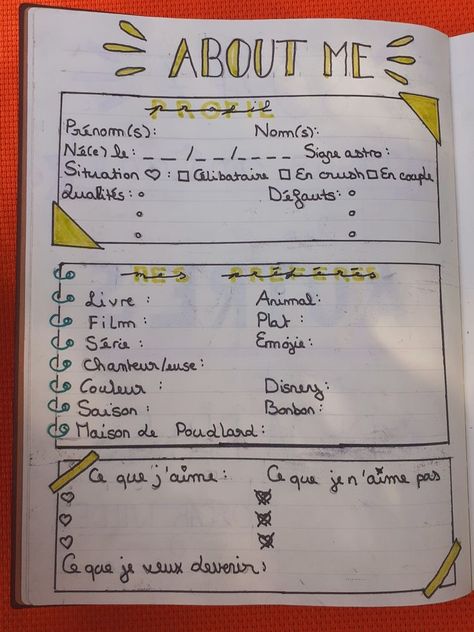 ABOUT ME
PROFIL
Prénom(s): Nom(s):
Né(e) le: _ _ /_ _/_ _ _ _ Signe astro:
Situation ♡: □ Célibataire □ En crush □ En couple
Qualités: Défauts:
MES PRÉFÉRÉS
Livre : Animal:
Film : Plat:
Série : Emojie:
Chanteur/euse:
Couleur : Disney:
Saison : Bonbon:
Maison de Poudlard:
Ce que j'aime: Ce que je n'aime pas
Ce que je veux devenir: